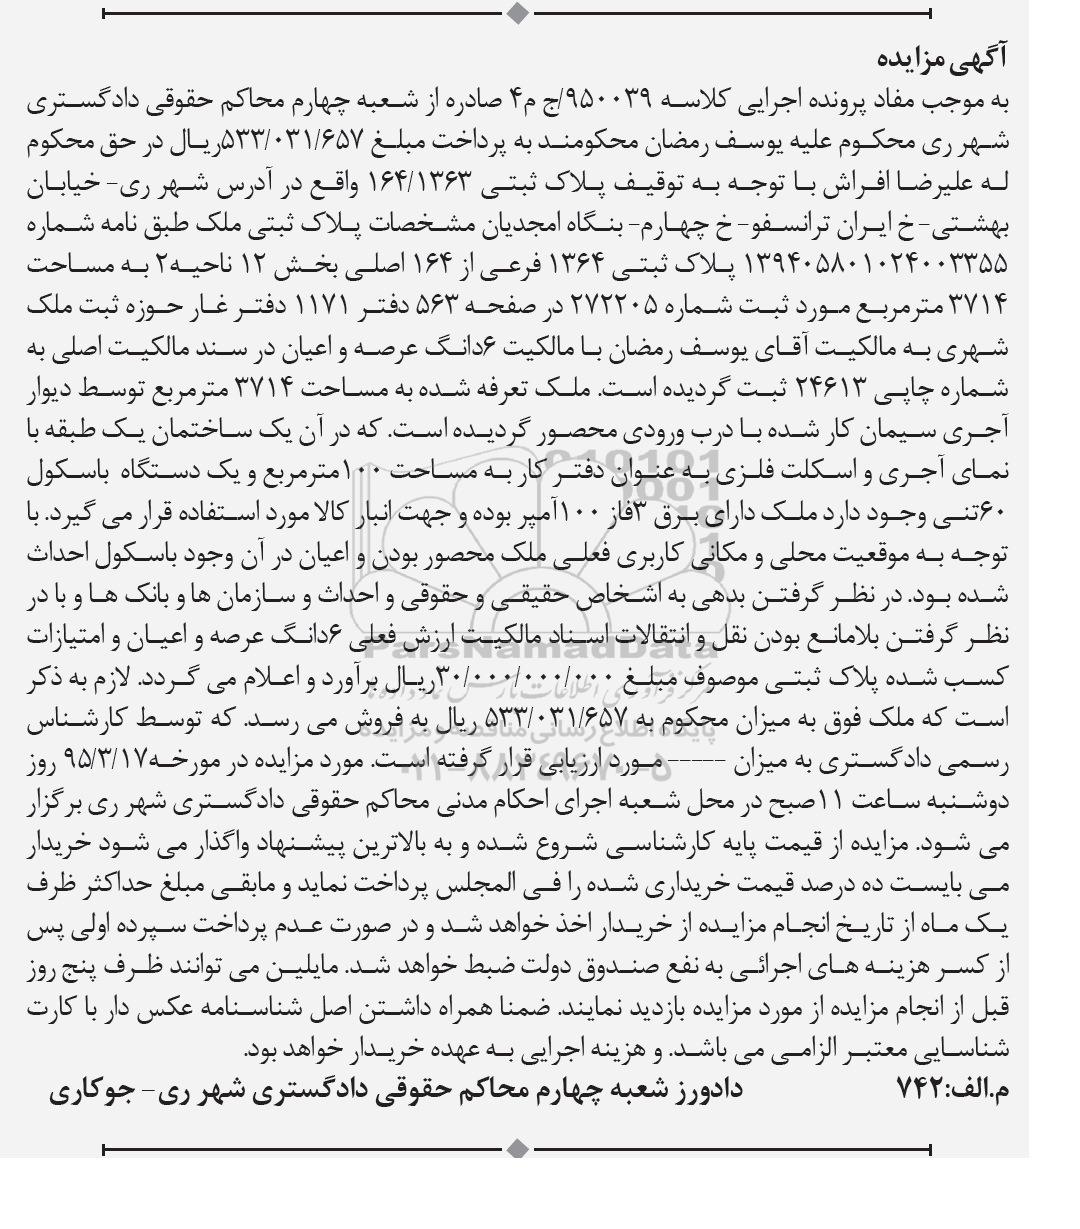 آگهی مزایده
به موجب مفاد پرونده اجرایی کلاسه ۹۵۰۰۳۹/ج م۴ صادره از شعبه چهارم محاکم حقوقی دادگستری
شهر ری محکوم علیه یوسف رمضان محکومند به پرداخت مبلغ ۵۳۳/۰۳۱/۶۵۷ریال در حق محکوم
له علیرضا افراش با توجه به توقیف پلاک ثبتی ۱۶۴/۱۳۶۳ واقع در آدرس شهر ری- خیابان
بهشتی- خ ایران ترانسفو- خ چهارم- بنگاه امجدیان مشخصات پلاک ثبتی ملک طبق نامه شماره
۱۳۹۴۰۵۸۰۱۰۲۴۰۰۳۳۵۵ پلاک ثبتی ۱۳۶۴ فرعی از ۱۶۴ اصلی بخش ۱۲ ناحیه۲ به مساحت
۳۷۱۴ مترمربع مورد ثبت شماره ۲۷۲۲۰۵ در صفحه ۵۶۳ دفتر ۱۱۷۱ دفتر غار حوزه ثبت ملک
شهری به مالکیت آقای یوسف رمضان با مالکیت ۶دانگ عرصه و اعیان در سند مالکیت اصلی به
شماره چاپی ۲۴۶۱۳ ثبت گردیده است. ملک تعرفه شده به مساحت ۳۷۱۴ مترمربع توسط دیوار
آجری سیمان کار شده با درب ورودی محصور گردیده است. که در آن یک ساختمان یک طبقه با
نمای آجری و اسکلت فلزی به عنوان دفتر کار به مساحت ۱۰۰مترمربع و یک دستگاه باسکول
۶۰تنی وجود دارد ملک دارای برق ۳فاز ۱۰۰آمپر بوده و جهت انبار کالا مورد استفاده قرار می گیرد. با
توجه به موقعیت محلی و مکانی کاربری فعلی ملک محصور بودن و اعیان در آن وجود باسکول احداث
شده بود. در نظر گرفتن بدهی به اشخاص حقیقی و حقوقی و احداث و سازمان ها و بانک ها و با در
نظر گرفتن بلامانع بودن نقل و انتقالات اسناد مالکیت ارزش فعلی ۶دانگ عرصه و اعیان و امتیازات
ParsNamadData
کسب شده پلاک ثبتی موصوف مبلغ ۳۰/۰۰۰/۰۰۰/۰۰۰ریال برآورد و اعلام می گردد. لازم به ذکر
است که ملک فوق به میزان محکوم به ۵۳۳/۰۳۱/۶۵۷ ریال به فروش می رسد. که توسط کارشناس
پایگاه اطلاع رسانی مناقصه و مزایده
رسمی دادگستری به میزان ----- مورد ارزیابی قرار گرفته است. مورد مزایده در مورخه۹۵/۳/۱۷ روز
۰۲۱-۸۸۳۴۹۶۷۰-۵
دوشنبه ساعت ۱۱صبح در محل شعبه اجرای احکام مدنی محاکم حقوقی دادگستری شهر ری برگزار
می شود. مزایده از قیمت پایه کارشناسی شروع شده و به بالاترین پیشنهاد واگذار می شود خریدار
می بایست ده درصد قیمت خریداری شده را فی المجلس پرداخت نماید و مابقی مبلغ حداکثر ظرف
یک ماه از تاریخ انجام مزایده از خریدار اخذ خواهد شد و در صورت عدم پرداخت سپرده اولی پس
از کسر هزینه های اجرائی به نفع صندوق دولت ضبط خواهد شد. مایلین می توانند ظرف پنج روز
قبل از انجام مزایده از مورد مزایده بازدید نمایند. ضمنا همراه داشتن اصل شناسنامه عکس دار با کارت
شناسایی معتبر الزامی می باشد. و هزینه اجرایی به عهده خریدار خواهد بود.
م.الف:۷۴۲ دادورز شعبه چهارم محاکم حقوقی دادگستری شهر ری- جوکاری